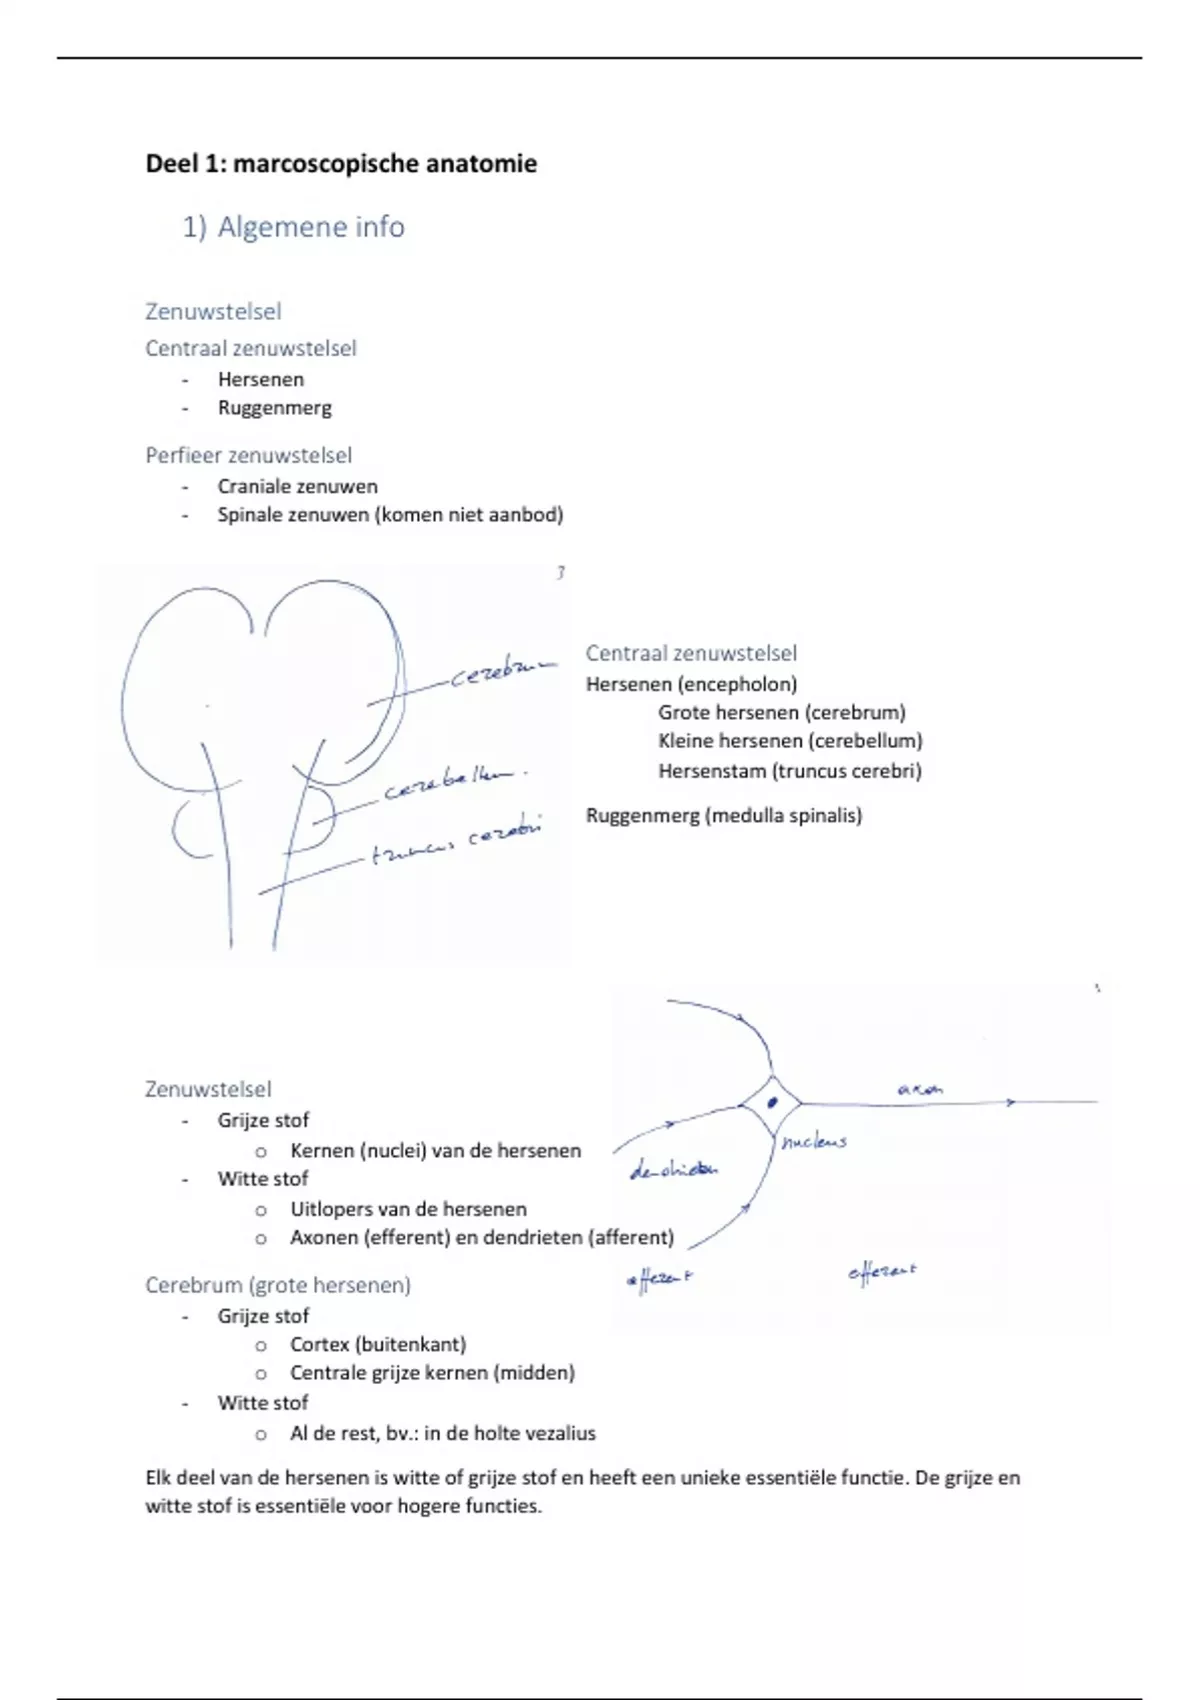 Deel 1: marcoscopische anatomie
1) Algemene info
Zenuwstelsel
Centraal zenuwstelsel
- Hersenen
- Ruggenmerg
Perfieer zenuwstelsel
- Craniale zenuwen
- Spinale zenuwen (komen niet aanbod)
3
cerebrum
cerebellum.
truncus cerebri
Centraal zenuwstelsel
Hersenen (encepholon)
Grote hersenen (cerebrum)
Kleine hersenen (cerebellum)
Hersenstam (truncus cerebri)
Ruggenmerg (medulla spinalis)
axon
nucleus
dendrieten
afferent
efferent
Zenuwstelsel
- Grijze stof
o Kernen (nuclei) van de hersenen
- Witte stof
o Uitlopers van de hersenen
o Axonen (efferent) en dendrieten (afferent)
Cerebrum (grote hersenen)
- Grijze stof
o Cortex (buitenkant)
o Centrale grijze kernen (midden)
- Witte stof
o Al de rest, bv.: in de holte vezalius
Elk deel van de hersenen is witte of grijze stof en heeft een unieke essentiële functie. De grijze en
witte stof is essentiële voor hogere functies.